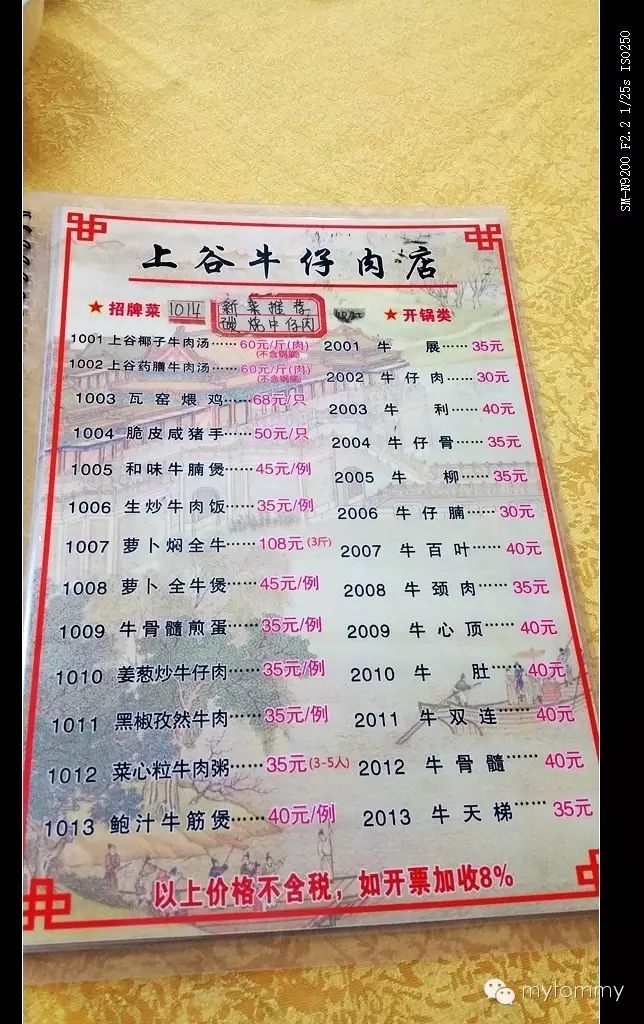 上谷牛仔肉店
★ 招牌菜 1014 新菜推荐
碳烧牛仔肉
1001 上谷椰子牛肉汤……60元/斤(肉)
(不含锅底)
1002 上谷药膳牛肉汤……60元/斤(肉)
(不含锅底)
1003 瓦窑煨鸡……68元/只
1004 脆皮咸猪手……50元/只
1005 和味牛腩煲……45元/例
1006 生炒牛肉饭……35元/例
1007 萝卜焖全牛……108元(3斤)
1008 萝卜全牛煲……45元/例
1009 牛骨髓煎蛋……35元/例
1010 姜葱炒牛仔肉……35元/例
1011 黑椒孜然牛肉……35元/例
1012 菜心粒牛肉粥……35元(3-5人)
1013 鲍汁牛筋煲……40元/例
★ 开锅类
2001 牛展……35元
2002 牛仔肉……30元
2003 牛利……40元
2004 牛仔骨……35元
2005 牛柳……35元
2006 牛仔腩……30元
2007 牛百叶……40元
2008 牛颈肉……35元
2009 牛心顶……40元
2010 牛肚……40元
2011 牛双连……40元
2012 牛骨髓……40元
2013 牛天梯……35元
以上价格不含税，如开票加收8%
SM-N9200 F2.2 1/25s ISO250
mytommy